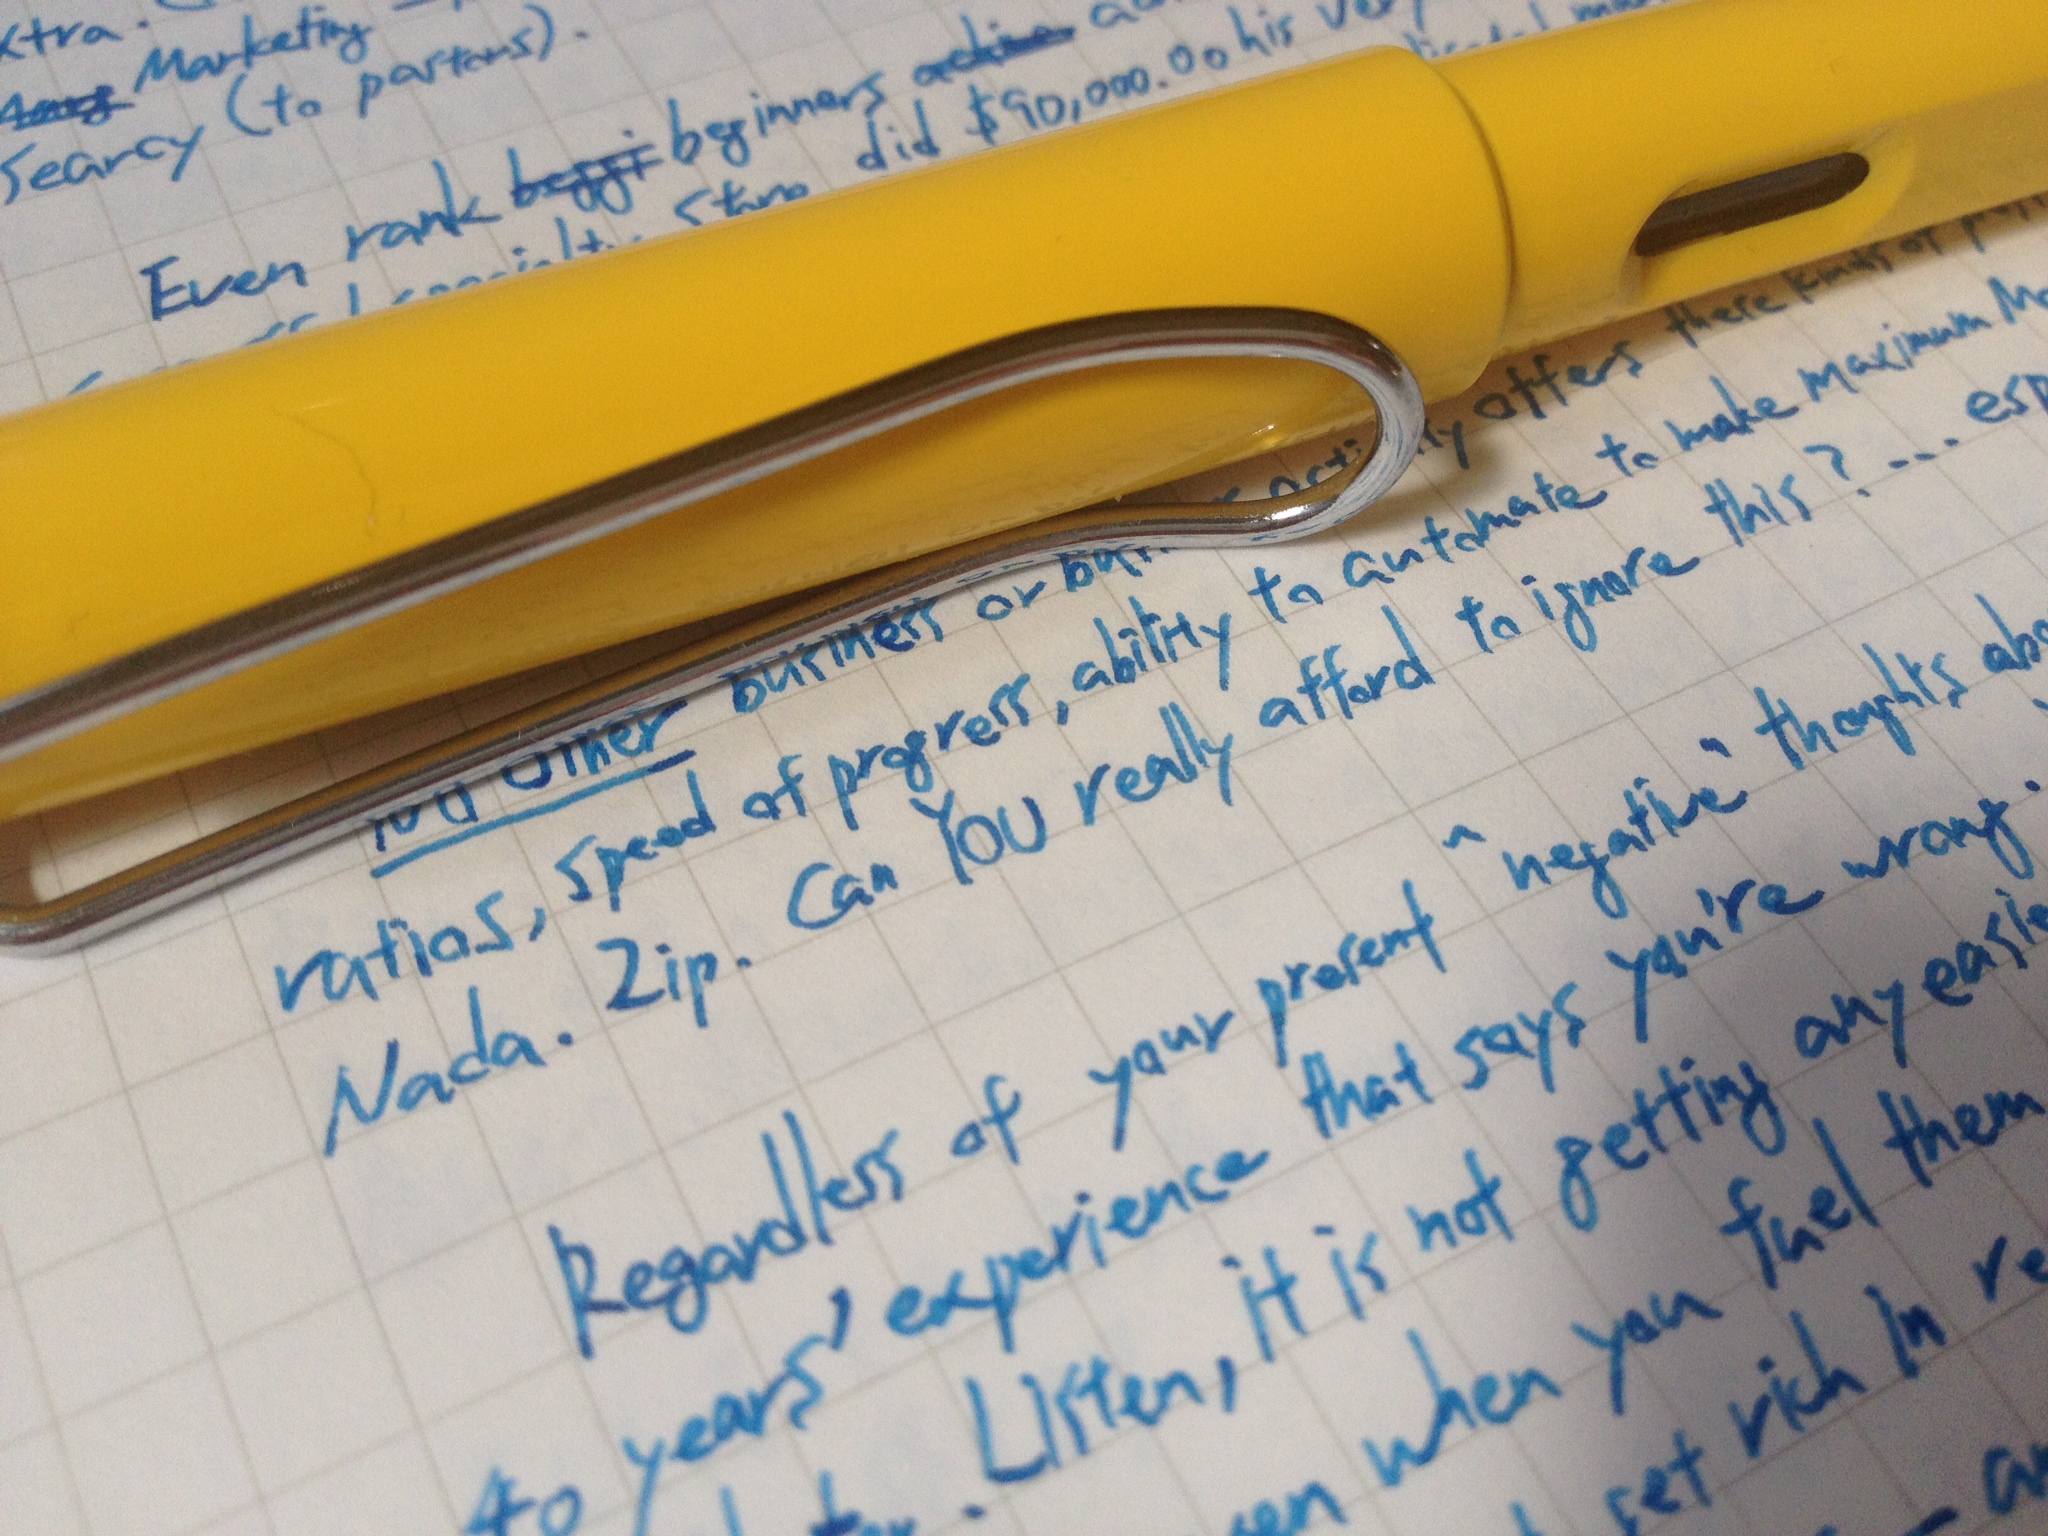 xtra.
Marketing
Searcy (to pastors).
Even rank beginners
Store did $90,000.00 his very
offers these kinds of
No other business or
ratios, speed of progress, ability to automate to make maximum
Nada. Zip. Can YOU really afford to ignore this? ... esp
Regardless of your present "negative" thoughts abo
40 years' experience that says you're wrong.
Listen, it is not getting any easie
when you fuel them
get rich in re